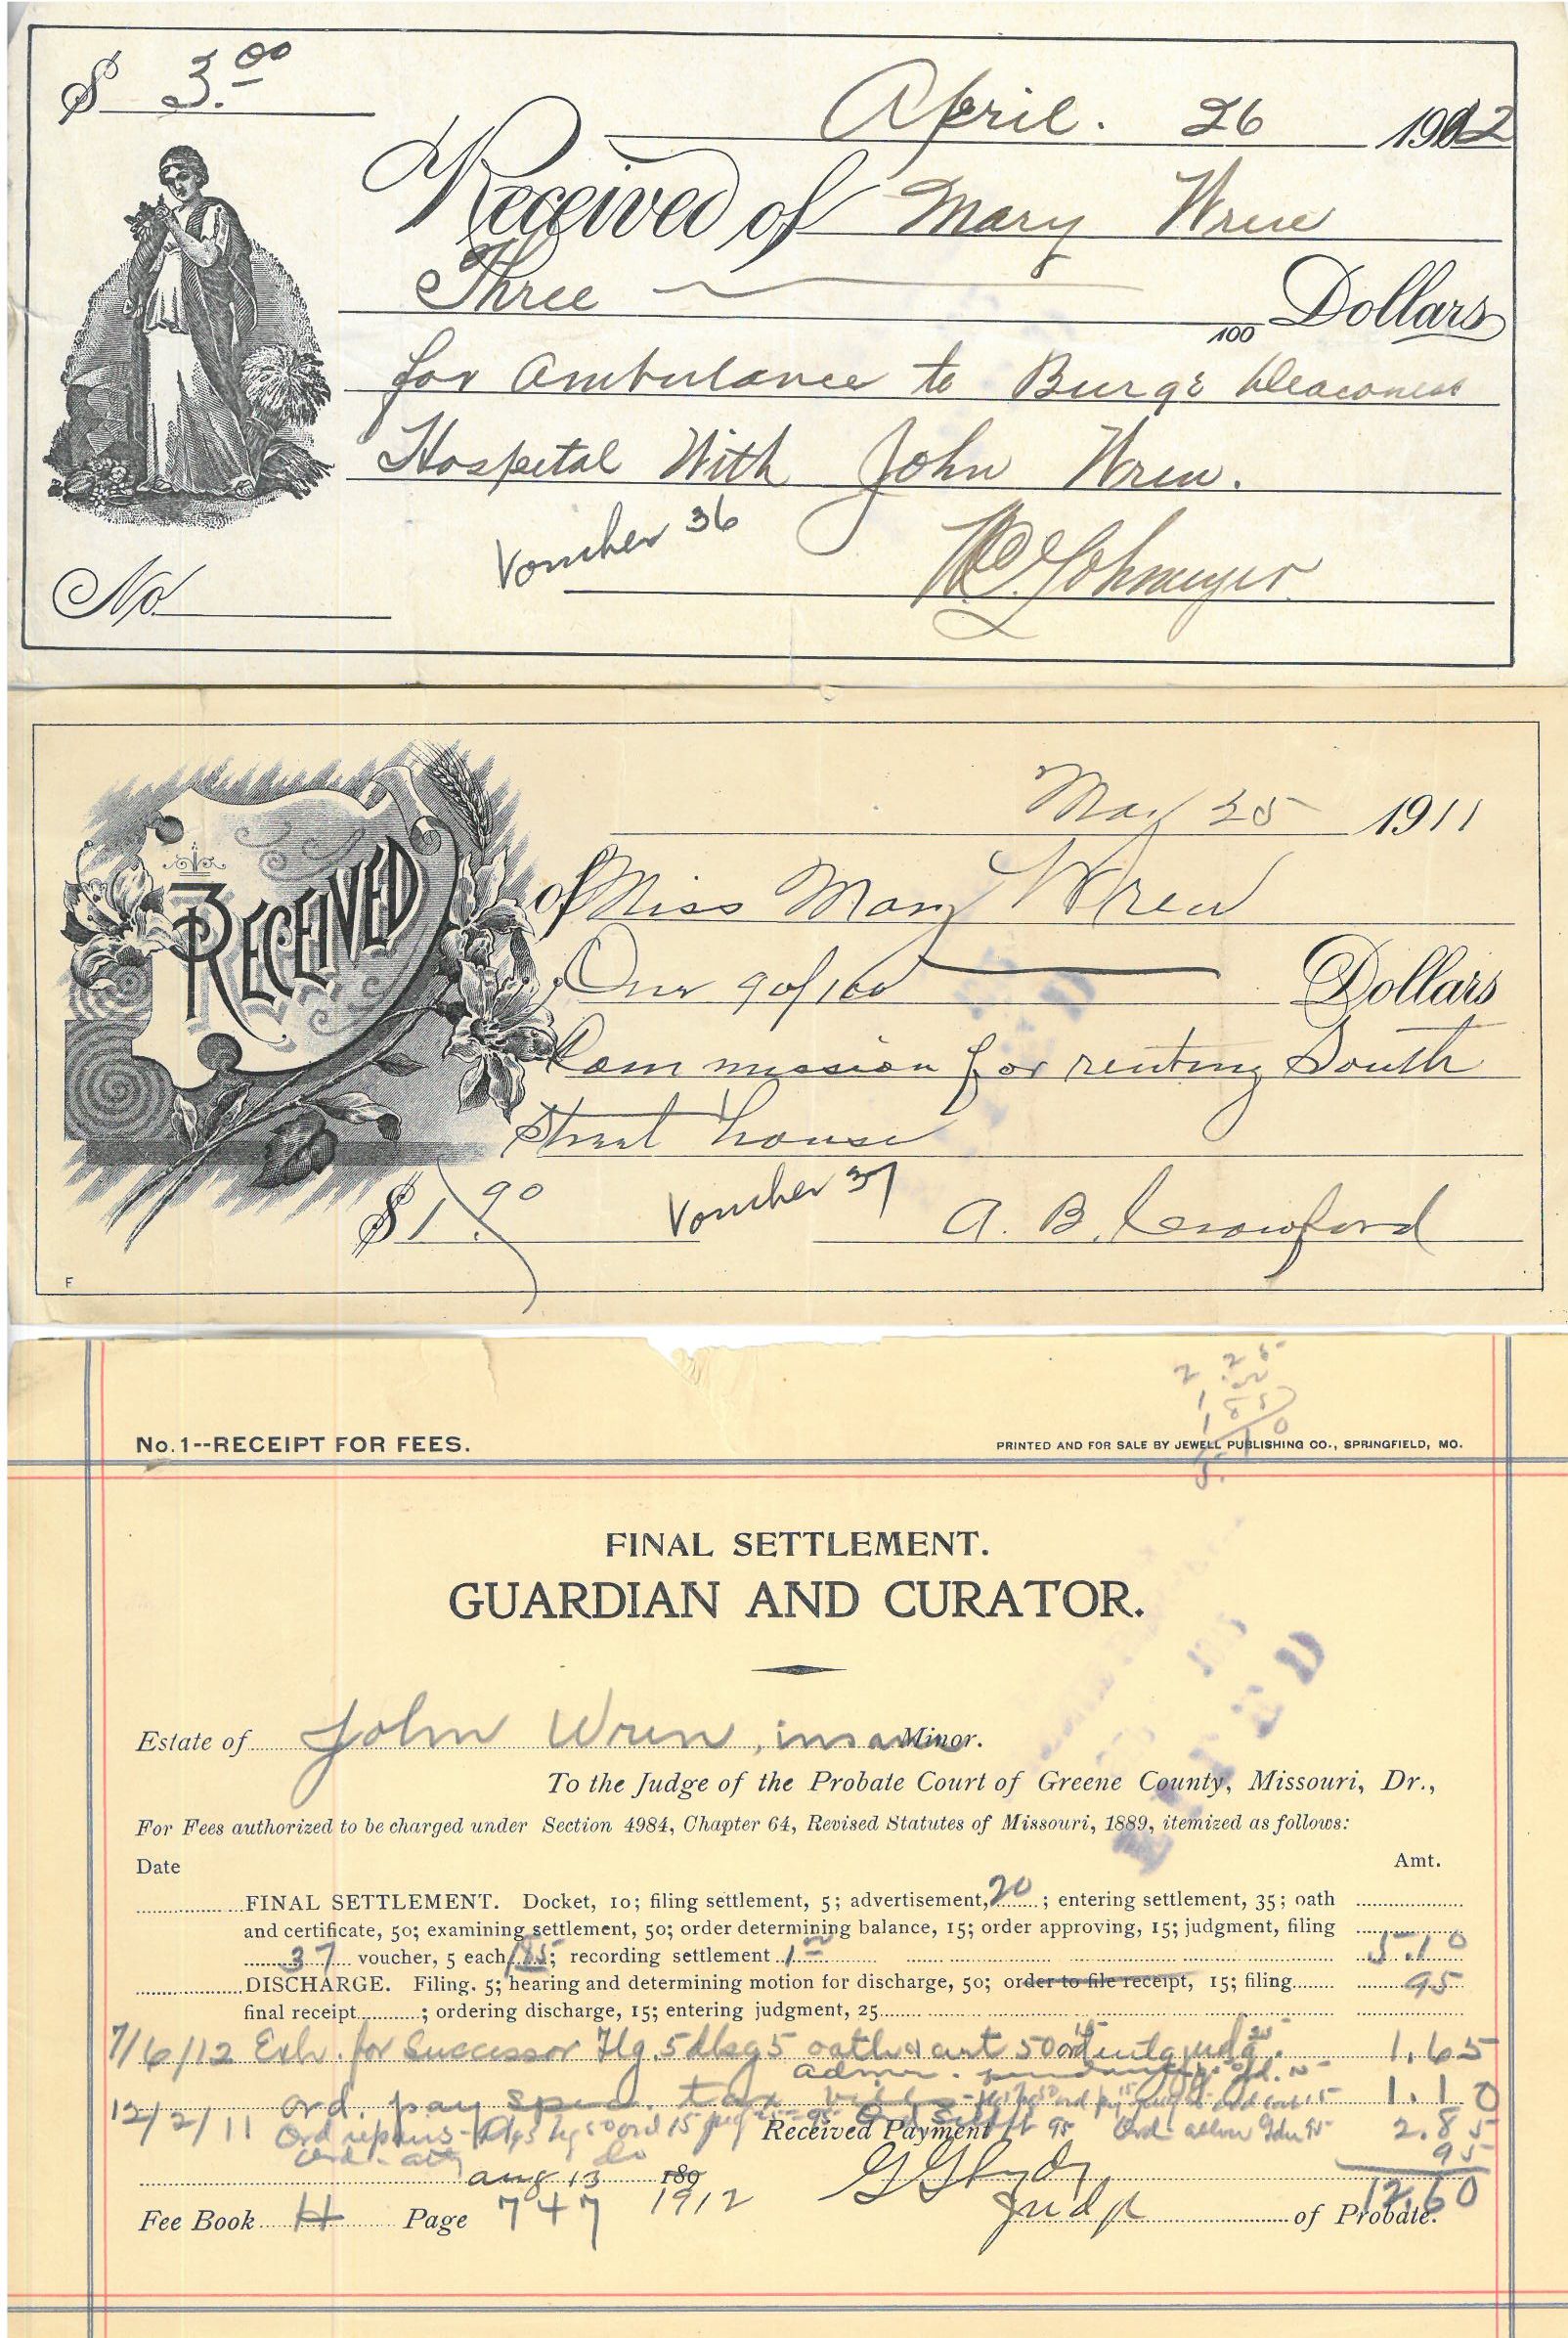 $ 3.00
April. 26 1912
Received of Mary Wren
Three Dollars
100
for Ambulance to Burge Deaconess
Hospital With John Wren.
Voucher 36
W.L. Lohmeyer
No.
May 25 1911
RECEIVED of Miss Mary Wren
One 90/100 Dollars
Commission for renting South
Street house
$1.90 Voucher 37 A. B. Crawford
F
No. 1--RECEIPT FOR FEES. PRINTED AND FOR SALE BY JEWELL PUBLISHING CO., SPRINGFIELD, MO.
FINAL SETTLEMENT.
GUARDIAN AND CURATOR.
Estate of John Wren, insane Minor.
To the Judge of the Probate Court of Greene County, Missouri, Dr.,
For Fees authorized to be charged under Section 4984, Chapter 64, Revised Statutes of Missouri, 1889, itemized as follows:
Date Amt.
FINAL SETTLEMENT. Docket, 10; filing settlement, 5; advertisement, 20; entering settlement, 35; oath
and certificate, 50; examining settlement, 50; order determining balance, 15; order approving, 15; judgment, filing
37 voucher, 5 each 1.85; recording settlement 1.00 5.10
DISCHARGE. Filing. 5; hearing and determining motion for discharge, 50; order to file receipt, 15; filing 95
final receipt; ordering discharge, 15; entering judgment, 25
7/6/12 for Successor 5 5 oath 50 1.65
12/2/11 ord. pay spec. tax 1.10
Ord repairs 15 95 2.85
Received Payment
95
Aug 13 189
1912
12.60
Fee Book H Page 747 Judge of Probate.